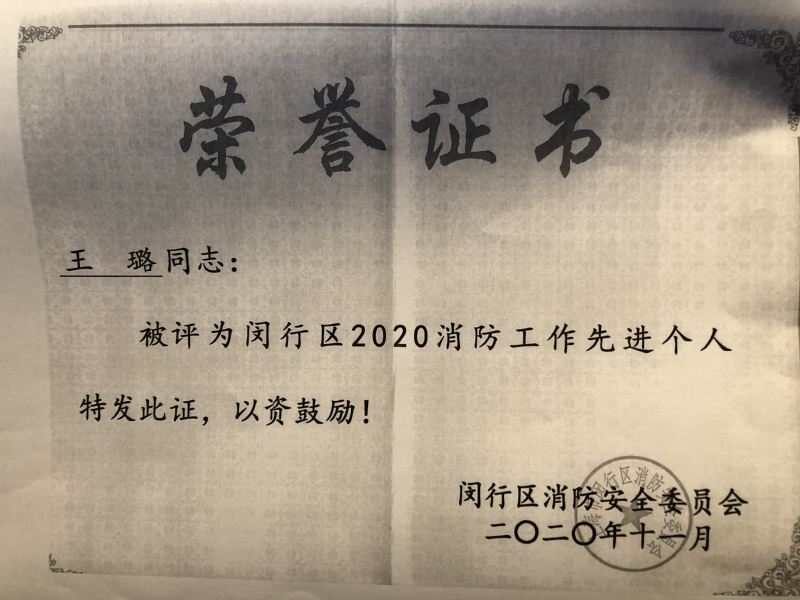 荣誉证书
王 璐同志：
被评为闵行区2020消防工作先进个人
特发此证，以资鼓励！
闵行区消防安全委员会
二〇二〇年十一月